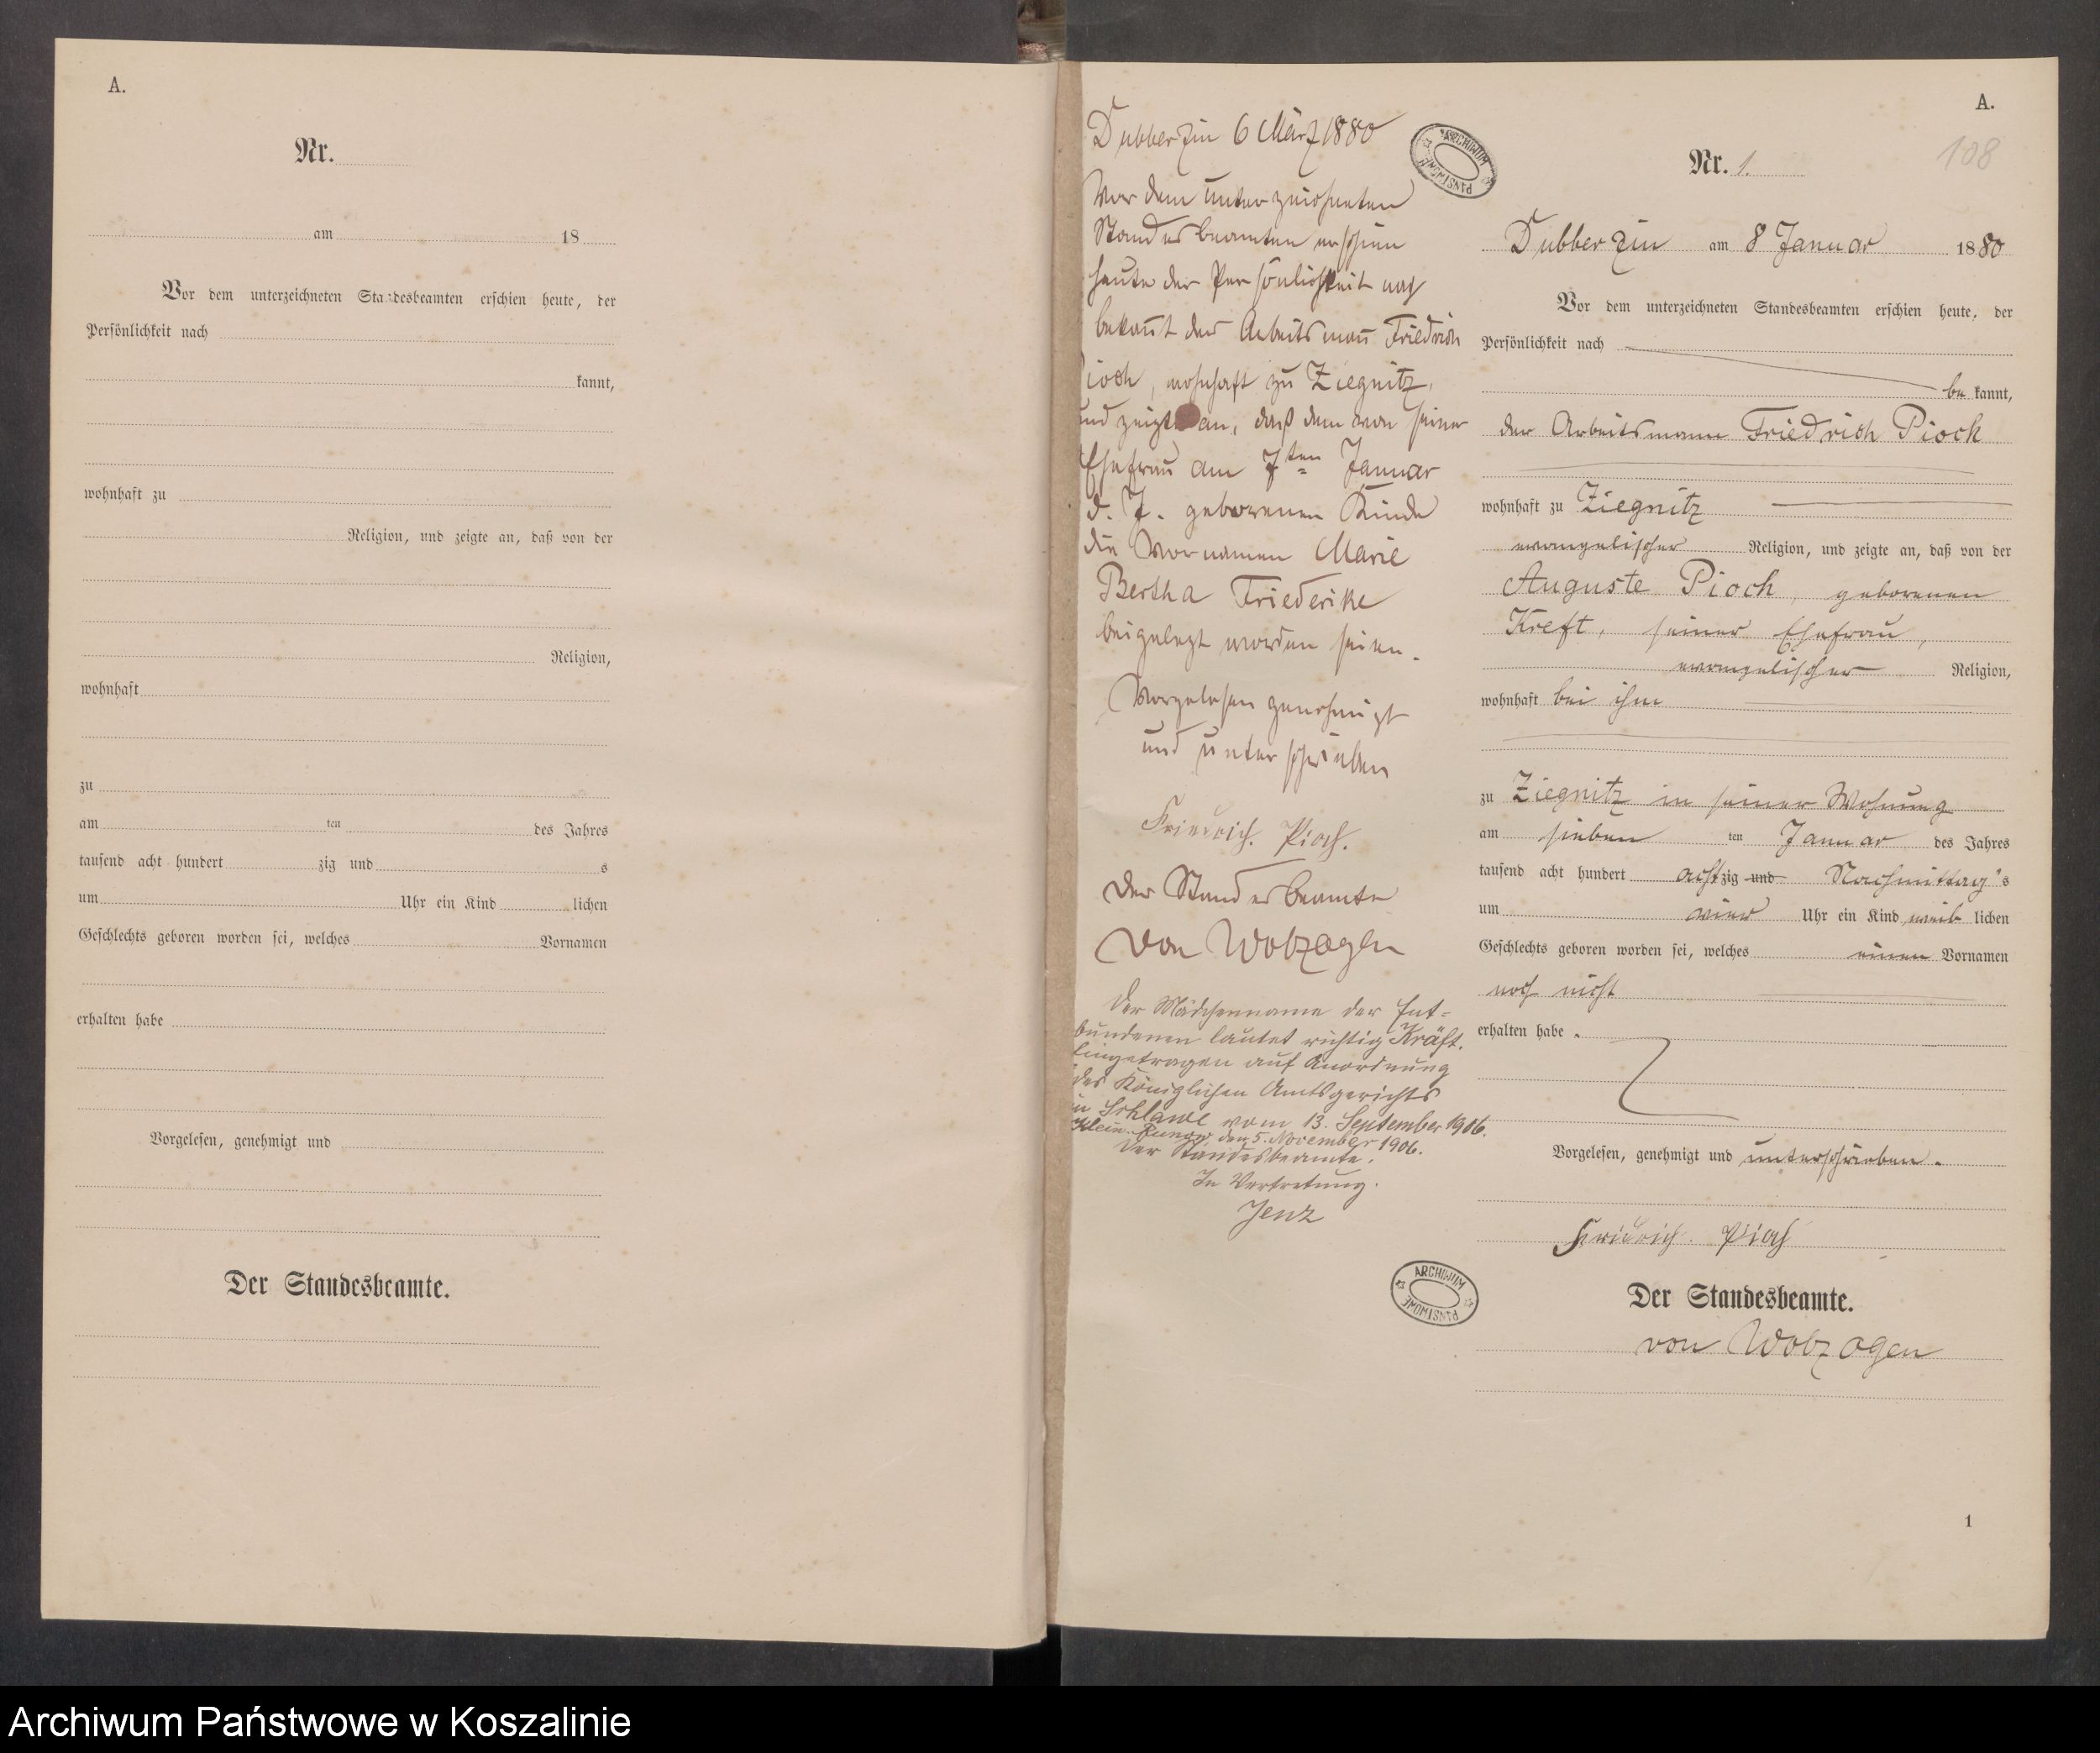 A.
Nr.
am 18
Vor dem unterzeichneten Standesbeamten erschien heute, der
Persönlichkeit nach
kannt,
wohnhaft zu
Religion, und zeigte an, daß von der
Religion,
wohnhaft
zu
am ten des Jahres
tausend acht hundert zig und s
um Uhr ein Kind lichen
Geschlechts geboren worden sei, welches Vornamen
erhalten habe
Vorgelesen, genehmigt und
Der Standesbeamte.
Dubberzin 6 März 1880
Vor dem unterzeichneten
Standesbeamten erschien
heute der Persönlichkeit nach
bekannt der Arbeitsmann Friedrich
Pioch, wohnhaft zu Ziegnitz,
und zeigte an, daß dem von seiner
Ehefrau am 7ten Januar
d. J. geborenen Kinde
die Vornamen Marie
Bertha Friederike
beigelegt worden seien.
Vorgelesen genehmigt
und unterschrieben
Friedrich. Pioch.
Der Standesbeamte
von Wolzogen
Der Mädchenname der Ent-
bundenen lautet richtig Kräft.
Eingetragen auf Anordnung
des Königlichen Amtsgerichts
in Schlawe vom 13. September 1906.
Klein Runow, den 5. November 1906.
Der Standesbeamte.
In Vertretung.
Jenz
ARCHIWUM PAŃSTWOWE
ARCHIWUM PAŃSTWOWE
A.
108
Nr. 1.
Dubberzin am 8 Januar 1880
Vor dem unterzeichneten Standesbeamten erschien heute, der
Persönlichkeit nach
be kannt,
der Arbeitsmann Friedrich Pioch
wohnhaft zu Ziegnitz
evangelischer Religion, und zeigte an, daß von der
Auguste Pioch, geborenen
Kreft, seiner Ehefrau,
evangelischer Religion,
wohnhaft bei ihm
zu Ziegnitz in seiner Wohnung
am sieben ten Januar des Jahres
tausend acht hundert achtzig und Nachmittag's
um vier Uhr ein Kind weib lichen
Geschlechts geboren worden sei, welches einen Vornamen
noch nicht
erhalten habe.
Vorgelesen, genehmigt und unterschrieben.
Friedrich. Pioch
Der Standesbeamte.
von Wolzogen
1
Archiwum Państwowe w Koszalinie